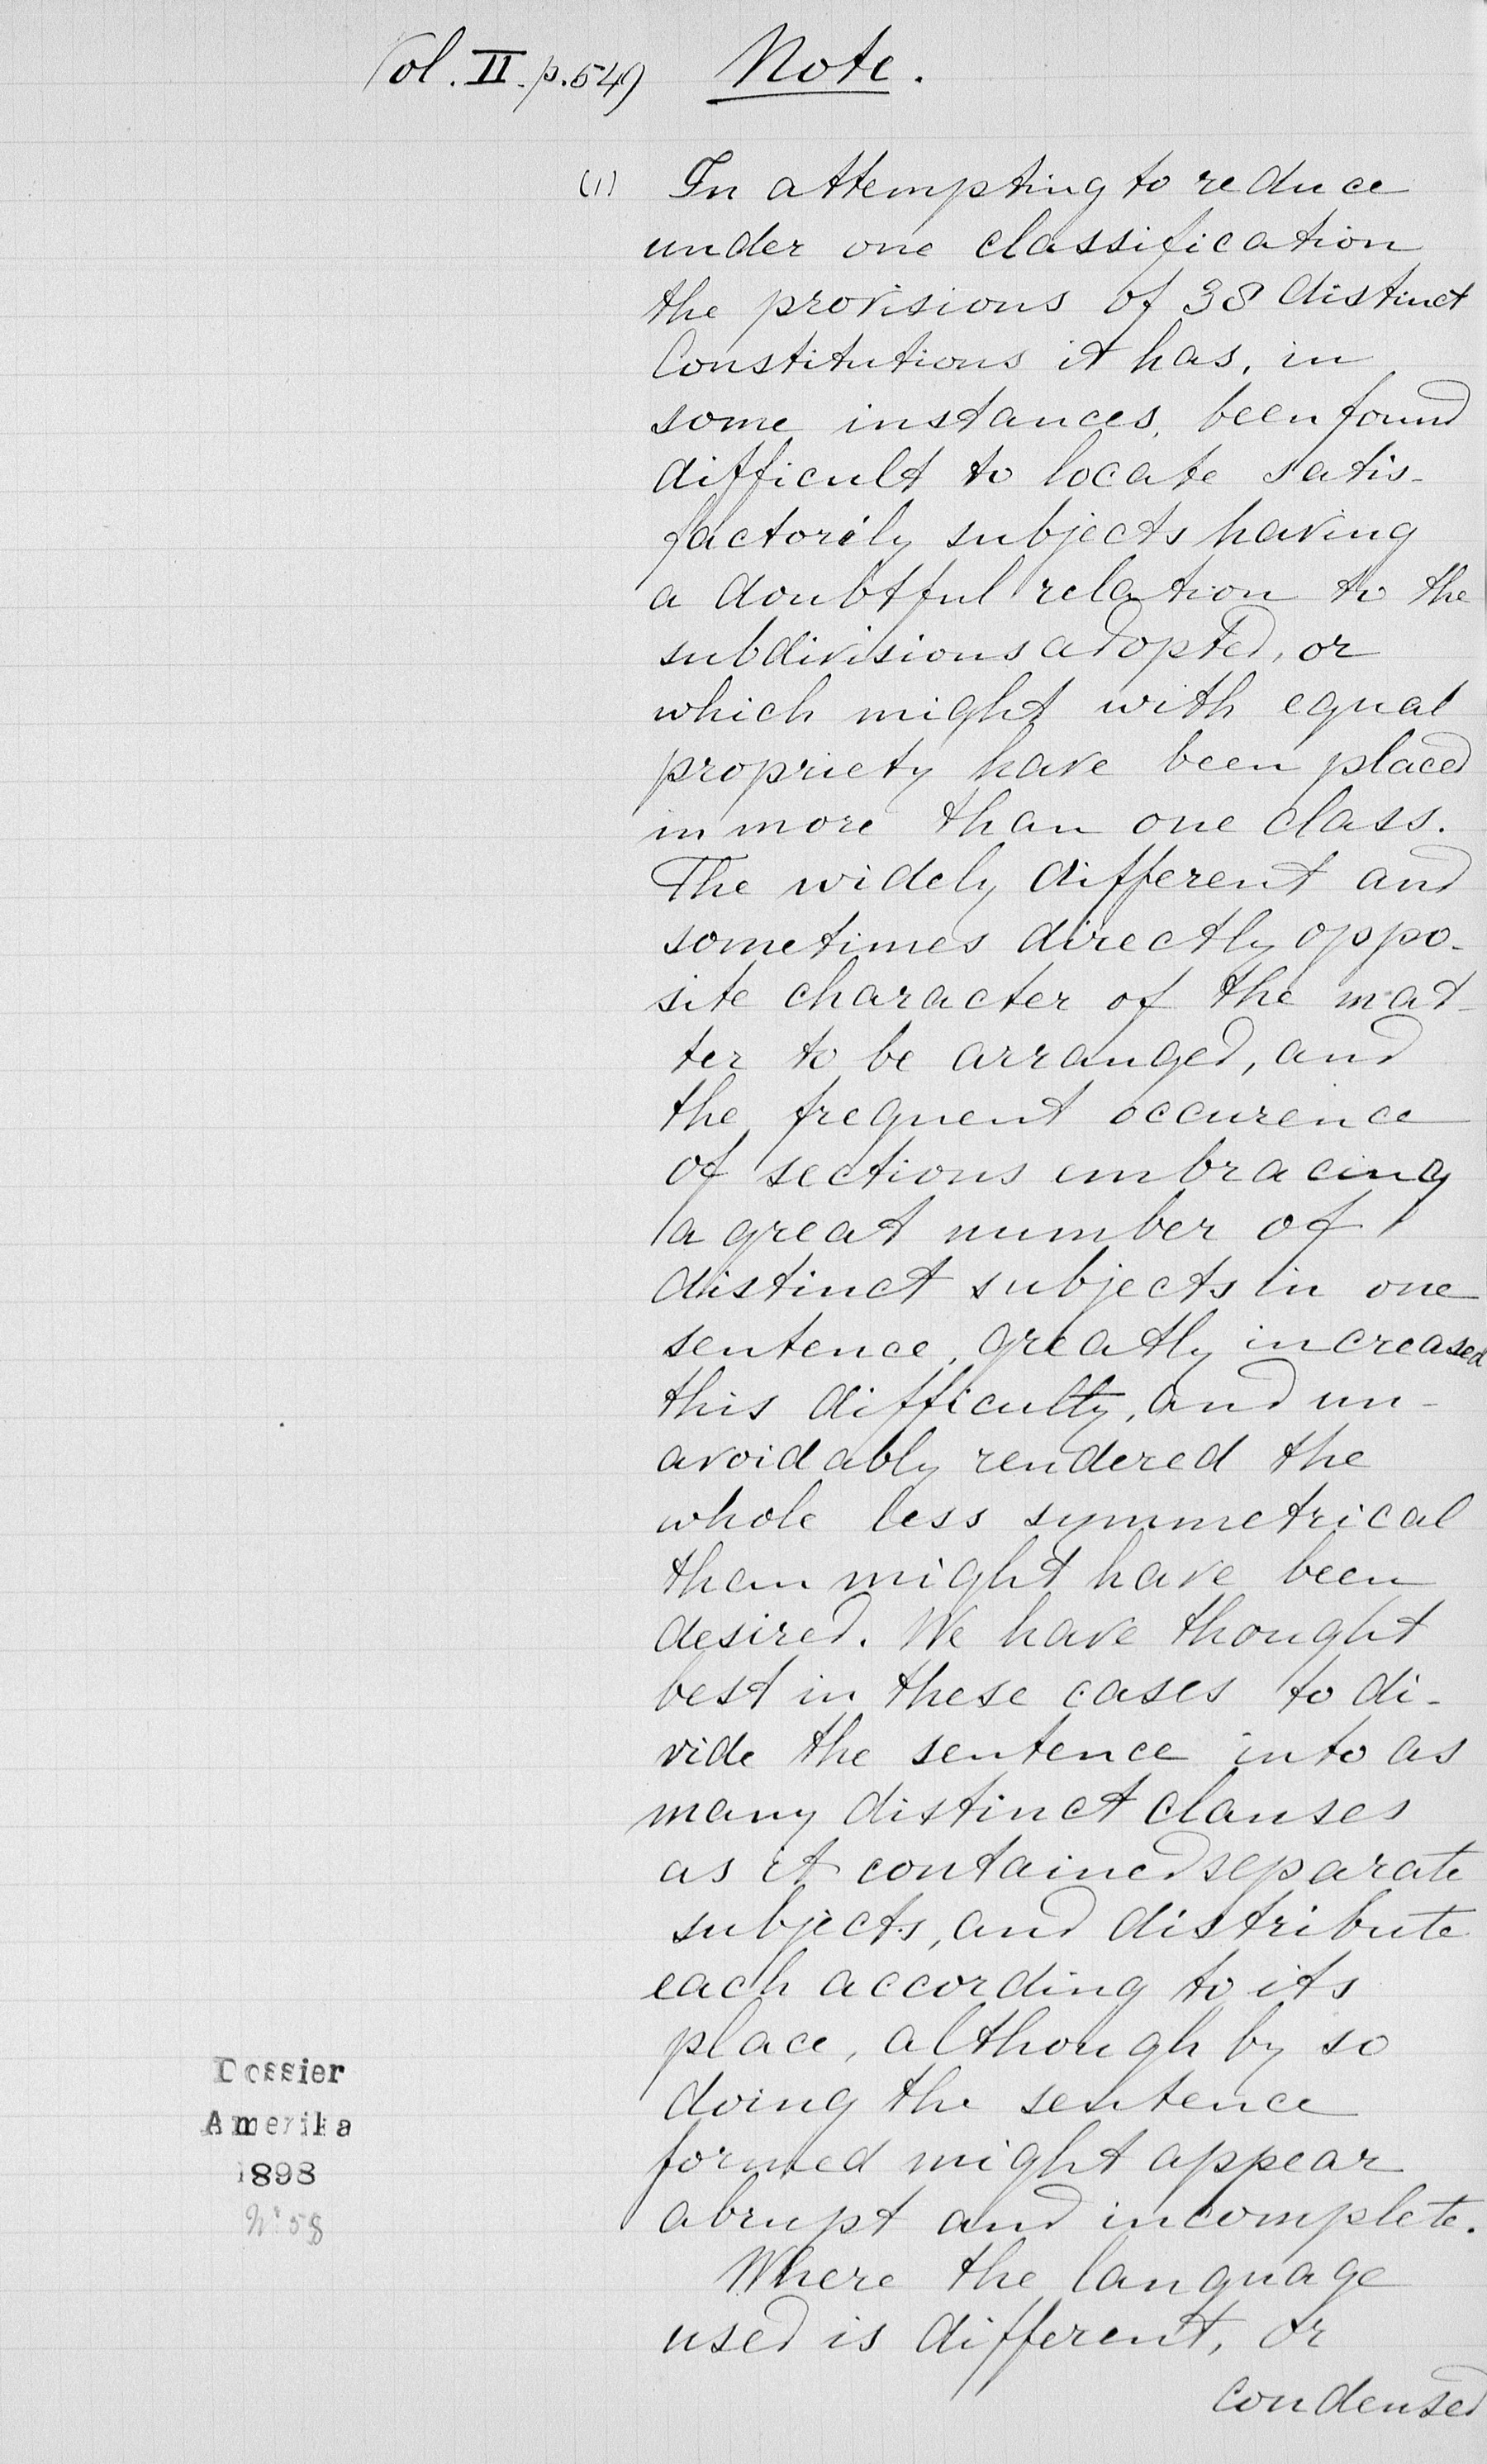 Vol. II. p. 549) Note.
(1) In attempting to reduce
under one classification
the provisions of 38 distinct
Constitutions it has, in
some instances, been found
difficult to locate satis-
factorily subjects having
a doubtful relation to the
subdivisions adopted, or
which might with equal
propriety have been placed
in more than one class.
The widely different and
sometimes directly oppo-
site character of the mat-
ter to be arranged, and
the frequent occurence
of sections embracing
a great number of
distinct subjects in one
sentence, greatly increased
this difficulty, and un-
avoidably rendered the
whole less symmetrical
than might have been
desired. We have thought
best in these cases to di-
vide the sentence into as
many distinct clauses
as it contained separate
subjects, and distribute
each according to its
place, although by so
doing the sentence
formed might appear
abrupt and incomplete.
Where the language
used is different, or
condensed
Dossier
Amerika
1898
No 58